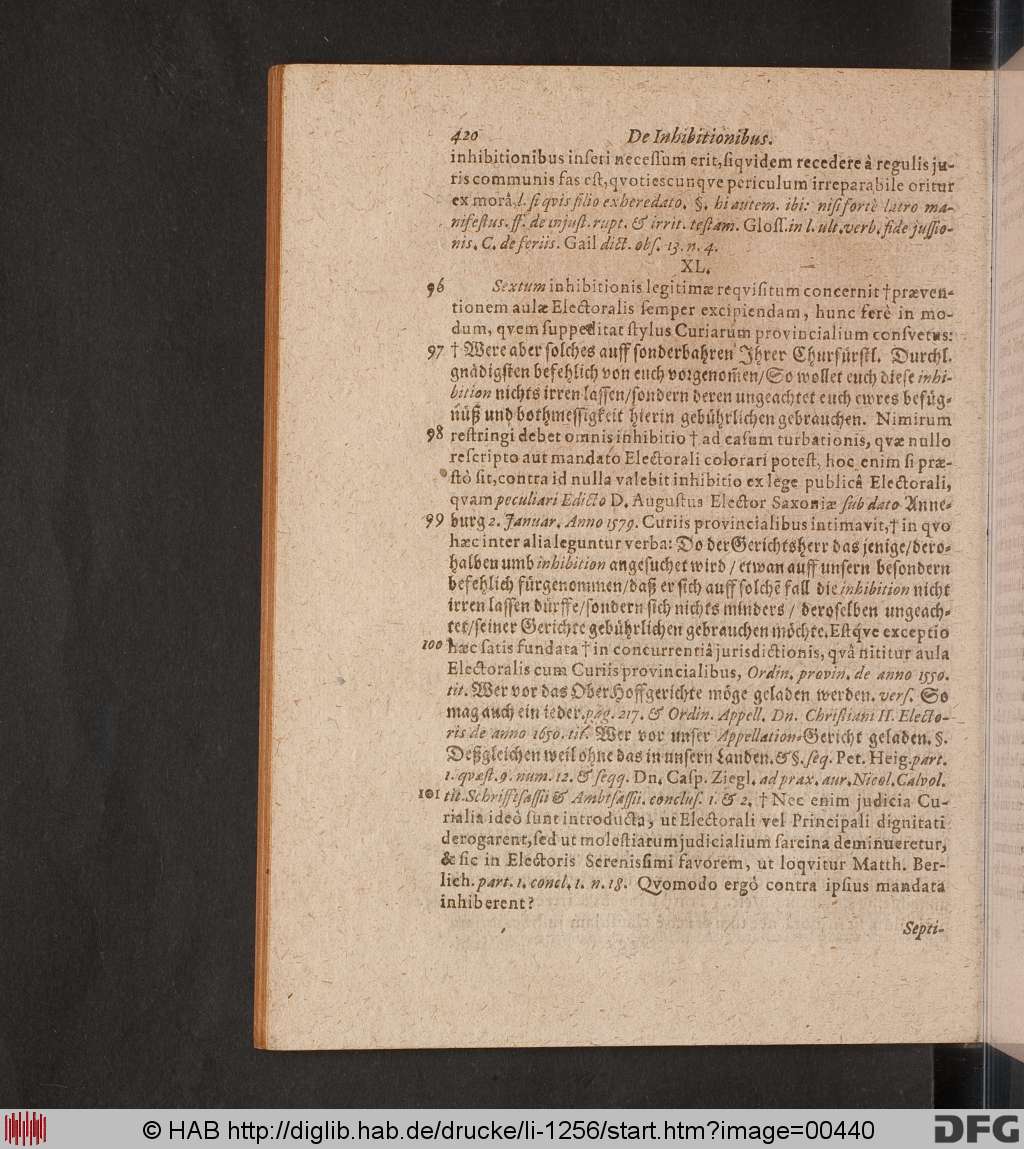 420 De Inhibitionibus.
inhibitionibus inseri necessum erit, siqvidem recedere à regulis ju-
ris communis fas est, qvotiescunqve periculum irreparabile oritur
ex morâ, l. si qvis filio exheredato. §. hi autem. ibi: nisi fortè latro ma-
nifestus. ff. de injust. rupt. & irrit. testam. Gloss. in l. ult. verb. fide jussio-
nis. C. de feriis. Gail dict. obs. 13. n. 4.
XL.
96 Sextum inhibitionis legitimæ reqvisitum concernit † præven-
tionem aulæ Electoralis semper excipiendam, hunc ferè in mo-
dum, qvem suppeditat stylus Curiarum provincialium consvetus:
97 † Were aber solches auff sonderbahren Ihrer Churfürstl. Durchl.
gnädigsten befehlich von euch vorgenom̃en/ So wollet euch diese inhi-
bition nichts irren lassen/ sondern deren ungeachtet euch ewres befüg-
nüß und bothmessigkeit hierin gebührlichen gebrauchen. Nimirum
98 restringi debet omnis inhibitio † ad casum turbationis, qvæ nullo
rescripto aut mandato Electorali colorari potest, hoc enim si præ-
stò sit, contra id nulla valebit inhibitio ex lege publicâ Electorali,
qvam peculiari Edicto D. Augustus Elector Saxoniæ sub dato Anne-
99 burg 2. Januar. Anno 1579. Curiis provincialibus intimavit, † in qvo
hæc inter alia leguntur verba: Do der Gerichtsherr das jenige/ dero-
halben umb inhibition angesuchet wird / etwan auff unsern besondern
befehlich fürgenommen/ daß er sich auff solchẽ fall die inhibition nicht
irren lassen dürffe/ sondern sich nichts minders / deroselben ungeach-
tet/ seiner Gerichte gebührlichen gebrauchen möchte. Estqve exceptio
100 hæc satis fundata † in concurrentiâ jurisdictionis, qvâ nititur aula
Electoralis cum Curiis provincialibus, Ordin. provin. de anno 1550.
tit. Wer vor das Ober Hoffgerichte möge geladen werden. vers. So
mag auch ein ieder. pag. 217. & Ordin. Appell. Dn. Christiani II. Electo-
ris de anno 1650. tit. Wer vor unser Appellation-Gericht geladen. §.
Deßgleichen weil ohne das in unsern Landen. & §. seq. Pet. Heig. part.
1. qvæst. 9. num. 12. & seqq. Dn. Casp. Ziegl. ad prax. aur. Nicol. Calvol.
101 tit. Schrifftsassii & Ambtsassii. conclus. 1. & 2. † Nec enim judicia Cu-
rialia ideò sunt introducta, ut Electorali vel Principali dignitati
derogarent, sed ut molestiarum judicialium sarcina deminueretur,
& sic in Electoris Serenissimi favorem, ut loqvitur Matth. Ber-
lich. part. 1. concl. 1. n. 18. Qvomodo ergò contra ipsius mandata
inhiberent?
Septi-
© HAB http://diglib.hab.de/drucke/li-1256/start.htm?image=00440
DFG